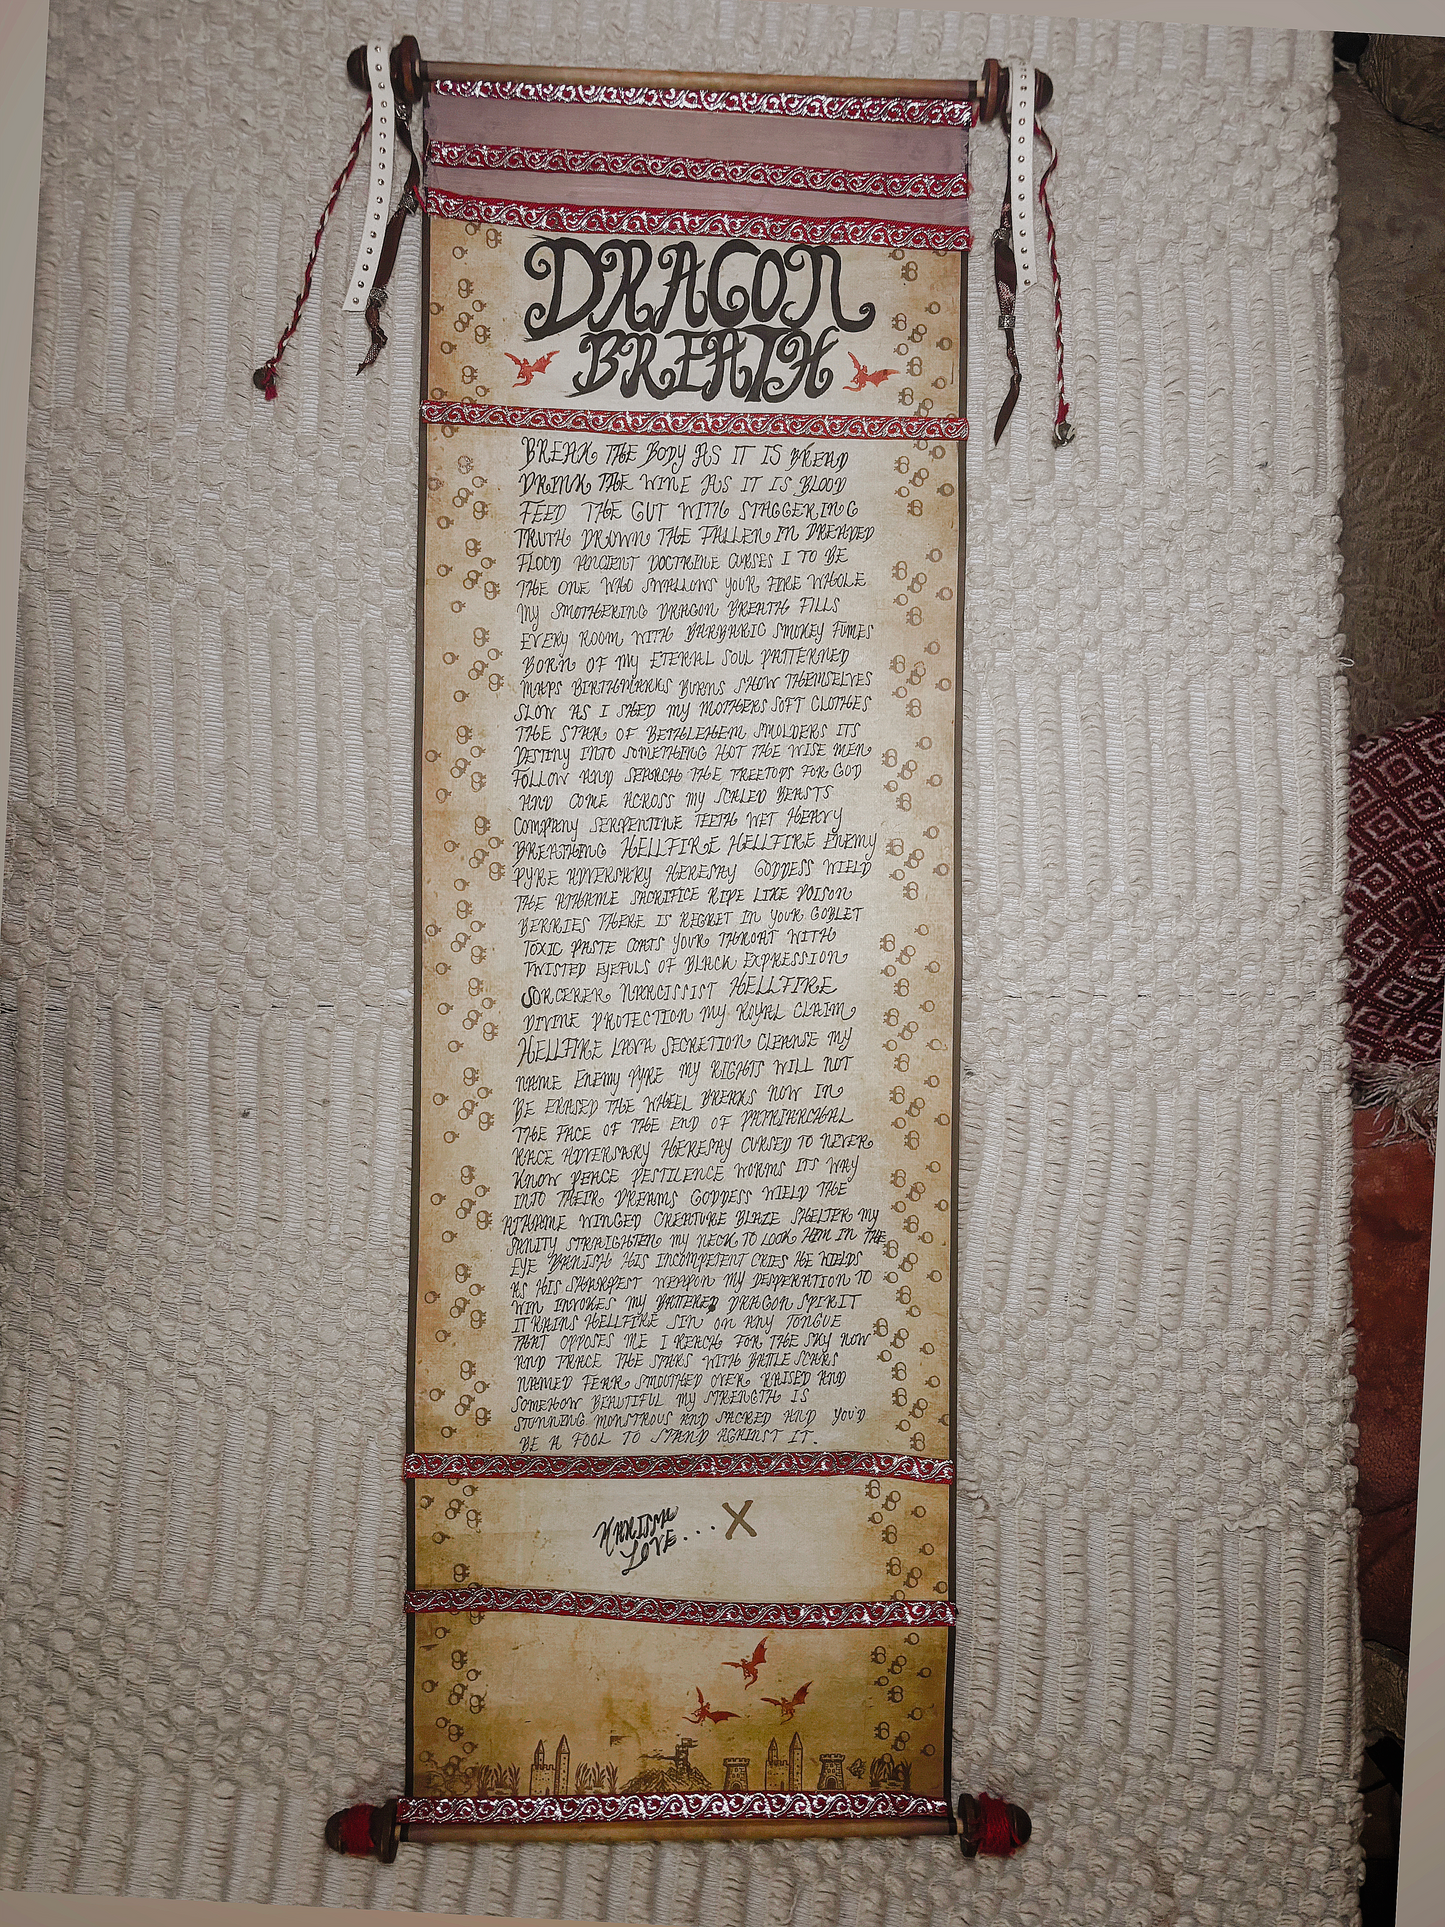 DRAGON
BREATH
BREAK THE BODY AS IT IS BREAD
DRINK THE WINE AS IT IS BLOOD
FEED THE GUT WITH STAGGERING
TRUTH DROWN THE FALLEN IN DREADED
FLOOD ANCIENT DOCTRINE CURSES I TO BE
THE ONE WHO SWALLOWS YOUR FIRE WHOLE
MY SMOTHERING DRAGON BREATH FILLS
EVERY ROOM WITH BARBARIC SMOKEY FUMES
BORN OF MY ETERNAL SOUL PATTERNED
MAPS BIRTHMARKS BURNS SHOW THEMSELVES
SLOW AS I SHED MY MOTHERS SOFT CLOTHES
THE STAR OF BETHLEHEM SMOLDERS ITS
DESTINY INTO SOMETHING HOT THE WISE MEN
FOLLOW AND SEARCH THE TREETOPS FOR GOD
AND COME ACROSS MY SCALED BEASTS
COMPANY SERPENTINE TEETH WET HEAVY
BREATHING HELLFIRE HELLFIRE ENEMY
PYRE ADVERSARY HERESAY GODDESS WIELD
THE ATHAME SACRIFICE RIPE LIKE POISON
BERRIES THERE IS REGRET IN YOUR GOBLET
TOXIC PASTE COATS YOUR THROAT WITH
TWISTED EYEFULS OF BLACK EXPRESSION
SORCERER NARCISSIST HELLFIRE
DIVINE PROTECTION MY ROYAL CLAIM
HELLFIRE LAVA SECRETION CLEANSE MY
NAME ENEMY PYRE MY RIGHTS WILL NOT
BE ERASED THE WHEEL BREAKS NOW IN
THE FACE OF THE END OF PATRIARCHAL
RACE ADVERSARY HERESAY CURSED TO NEVER
KNOW PEACE PESTILENCE WORMS ITS WAY
INTO THEIR DREAMS GODDESS WIELD THE
ATHAME WINGED CREATURE BLAZE SHELTER MY
SANITY STRAIGHTEN MY NECK TO LOOK HIM IN THE
EYE BANISH HIS INCOMPETENT CRIES HE WIELDS
AS HIS SHARPEST WEAPON MY DESPERATION TO
WIN INVOKES MY BATTERED DRAGON SPIRIT
IT RAINS HELLFIRE SIN ON ANY TONGUE
THAT OPPOSES ME I REACH FOR THE SKY NOW
AND TRACE THE STARS WITH BATTLE SCARS
NAMED FEAR SMOOTHED OVER RAISED AND
SOMEHOW BEAUTIFUL MY STRENGTH IS
STUNNING MONSTROUS AND SACRED AND YOU'D
BE A FOOL TO STAND AGAINST IT.
KARISMA
LOVE... X